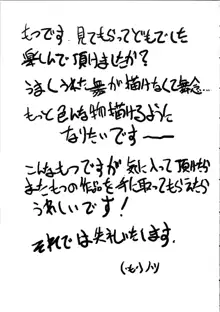 もつです 見てもらってどもでした
楽しんで頂けましたか？
うまくうれた舞が描けなくて無念…
もっと色んな物描けるように
なりたいです——
こんなもつですが気に入って頂けたら
またもつの作品を手に取ってもらえたら
うれしいです！
それでは失礼いたします。